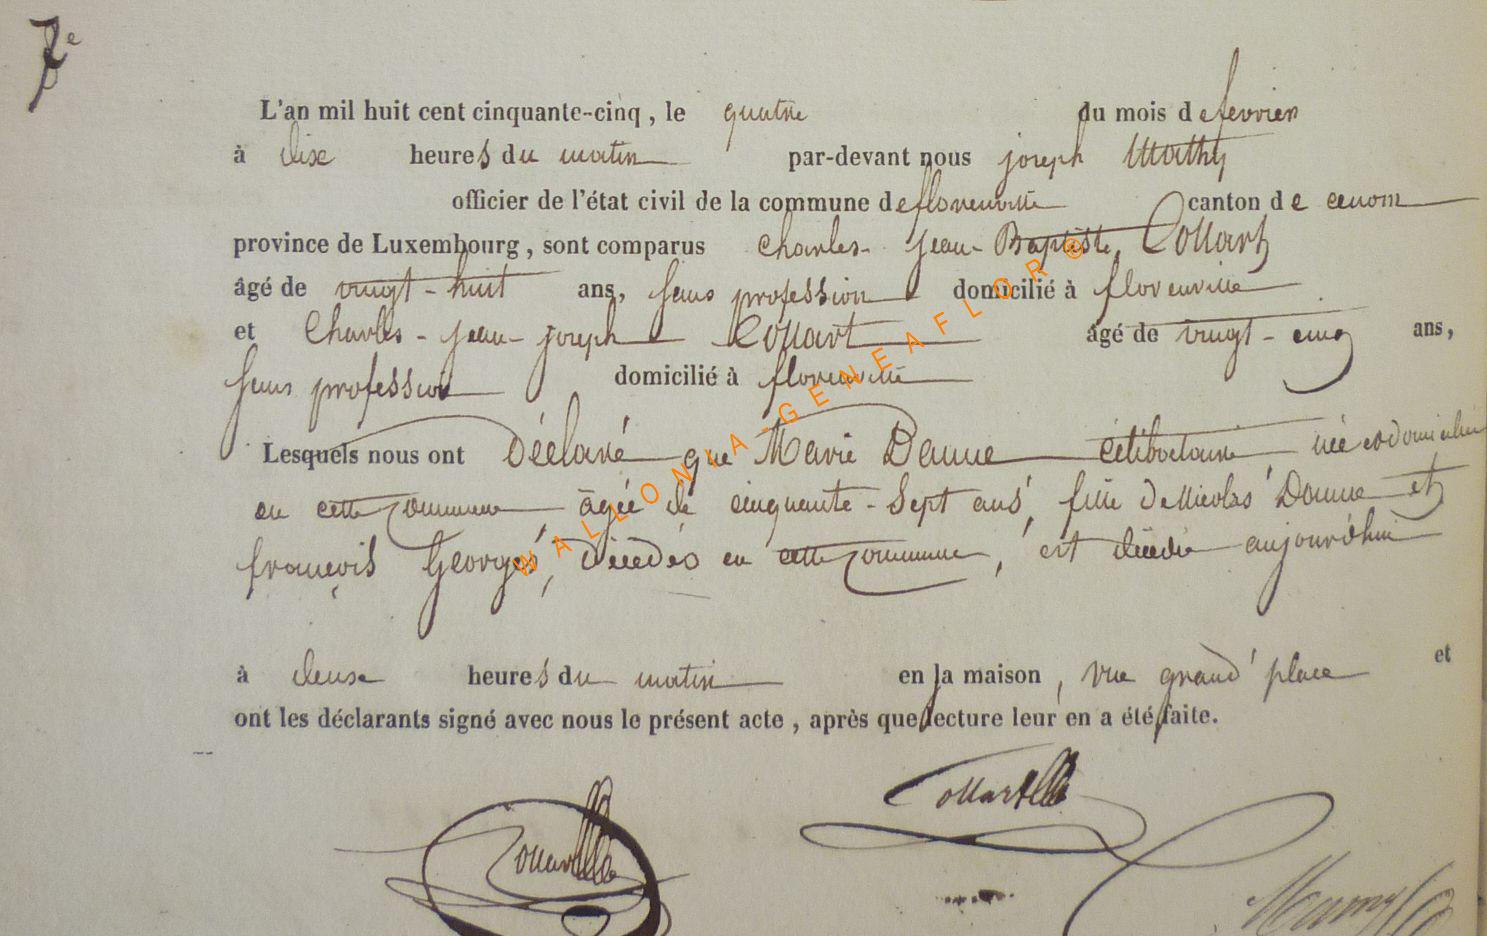 7e
L'an mil huit cent cinquante-cinq, le quatre du mois de fevrier
à dix heures du matin par-devant nous joseph Mathy
officier de l'état civil de la commune de florenville canton de
province de Luxembourg, sont comparus Charles-Jean-Baptiste Collart
âgé de vingt-huit ans, sans profession domicilié à florenville
et Charles-Jean-joseph Collart âgé de vingt-cinq ans,
sans profession domicilié à florenville
Lesquels nous ont Déclaré que Marie Danne célibataire née et domiciliée
en cette commune âgée de cinquante-sept ans, fille de Nicolas Danne et
françois Georges, décédés en cette commune, est décédée aujourd'hui
à deux heures du matin en la maison, rue grand' place et
ont les déclarants signé avec nous le présent acte, après que lecture leur en a été faite.
Collart
Collart
WALLONIA-GENEAFLOR®